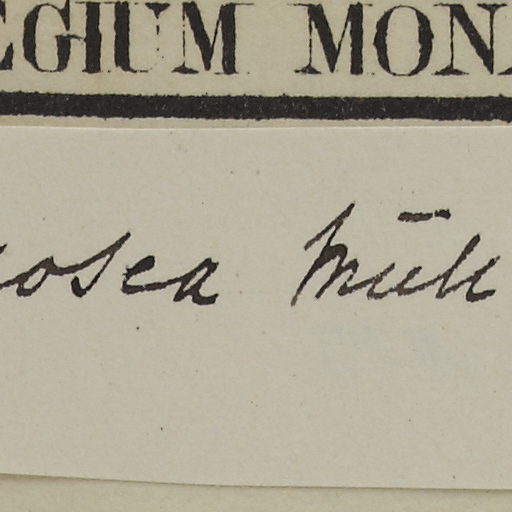 EGIUM MON
osea Müll